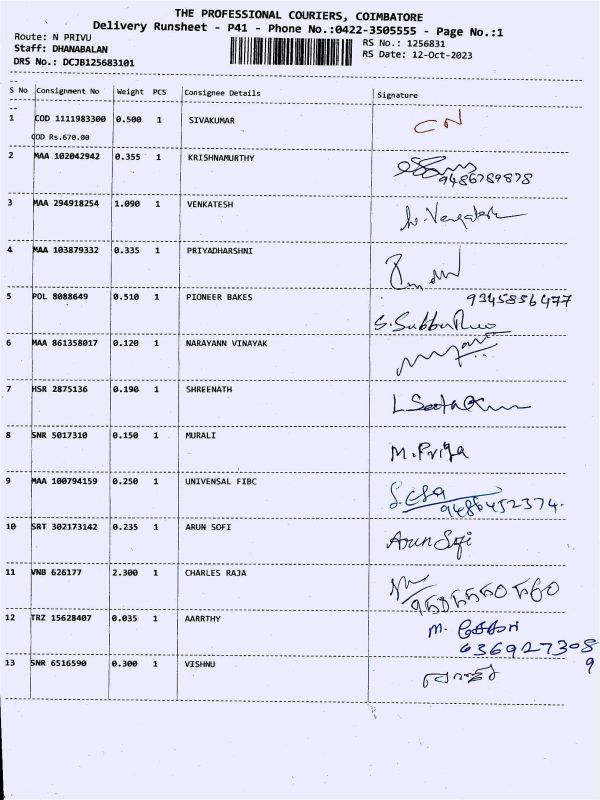 THE PROFESSIONAL COURIERS, COIMBATORE
Delivery Runsheet - P41 - Phone No.:0422-3505555 - Page No.:1
Route: N PRIVU
RS No.: 1256831
Staff: DHANABALAN
RS Date: 12-Oct-2023
DRS No.: DCJB125683101
S No Consignment No Weight PCS Consignee Details Signature
1 COD 1111983300 0.500 1 SIVAKUMAR CN
COD Rs.670.00
2 MAA 102042942 0.355 1 KRISHNAMURTHY
9486789878
3 MAA 294918254 1.090 1 VENKATESH
4 MAA 103879332 0.335 1 PRIYADHARSHNI
5 POL 8088649 0.510 1 PIONEER BAKES 9345856477
S. Subbu
6 MAA 861358017 0.120 1 NARAYANN VINAYAK
7 HSR 2875136 0.190 1 SHREENATH
8 SNR 5017310 0.150 1 MURALI M. Priya
9 MAA 100794159 0.250 1 UNIVENSAL FIBC
9486452374.
10 SRT 302173142 0.235 1 ARUN SOFI Arun Sofi
11 VNB 626177 2.300 1 CHARLES RAJA
12 TRZ 15628407 0.035 1 AARRTHY M.
636927308
9
13 SNR 6516590 0.300 1 VISHNU